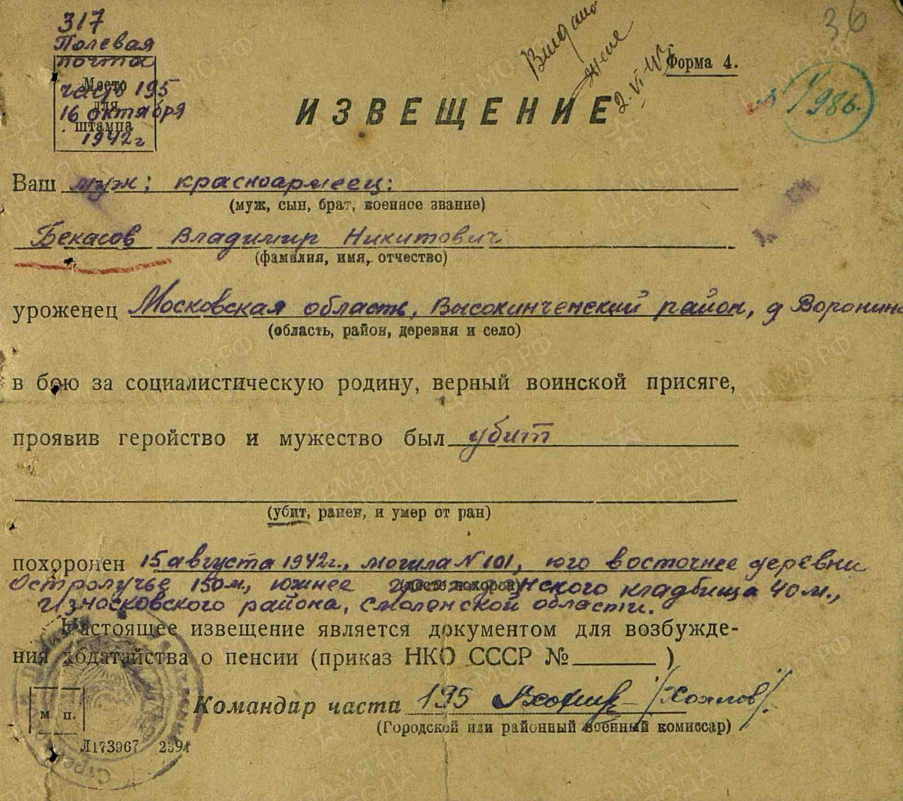 317
Полевая
почта
часть 195
16 октября
1942г
Место
для
штампа
Выдано
жене
2.VI.
36
Форма 4.
1986.
ИЗВЕЩЕНИЕ
Ваш муж; красноармеец:
(муж, сын, брат, военное звание)
Бекасов Владимир Никитович
(фамилия, имя, отчество)
уроженец Московская область, Высокинченский район, д Воронино
(область, район, деревня и село)
в бою за социалистическую родину, верный воинской присяге,
проявив геройство и мужество был убит
(убит, ранен, и умер от ран)
похоронен 15 августа 1942г., могила N 101, юго восточнее деревни
Остролучье 150м, южнее гражданского кладбища 40м.,
Износковского района, Смоленской области.
Настоящее извещение является документом для возбужде-
ния ходатайства о пенсии (приказ НКО СССР № )
Командар части 195
(Городской или районный военный комиссар)
м. п.
Л173967 2394